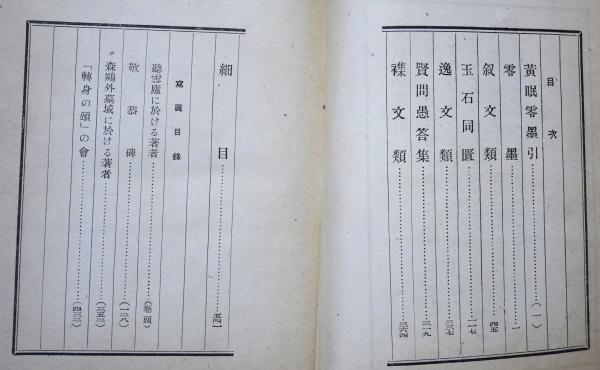 目次
黃眠零墨引……(一)
零墨……一
叙文類……四五
玉石同匱……二一七
逸文類……二三七
賢問愚答集……三一九
襍文類……三六四
細目……五四一
寫眞目錄
聽雪廬に於ける著者……(卷頭)
敬恭碑……(一二八)
森鷗外墓域に於ける著者……(三五二)
「轉身の頌」の會……(四三二)